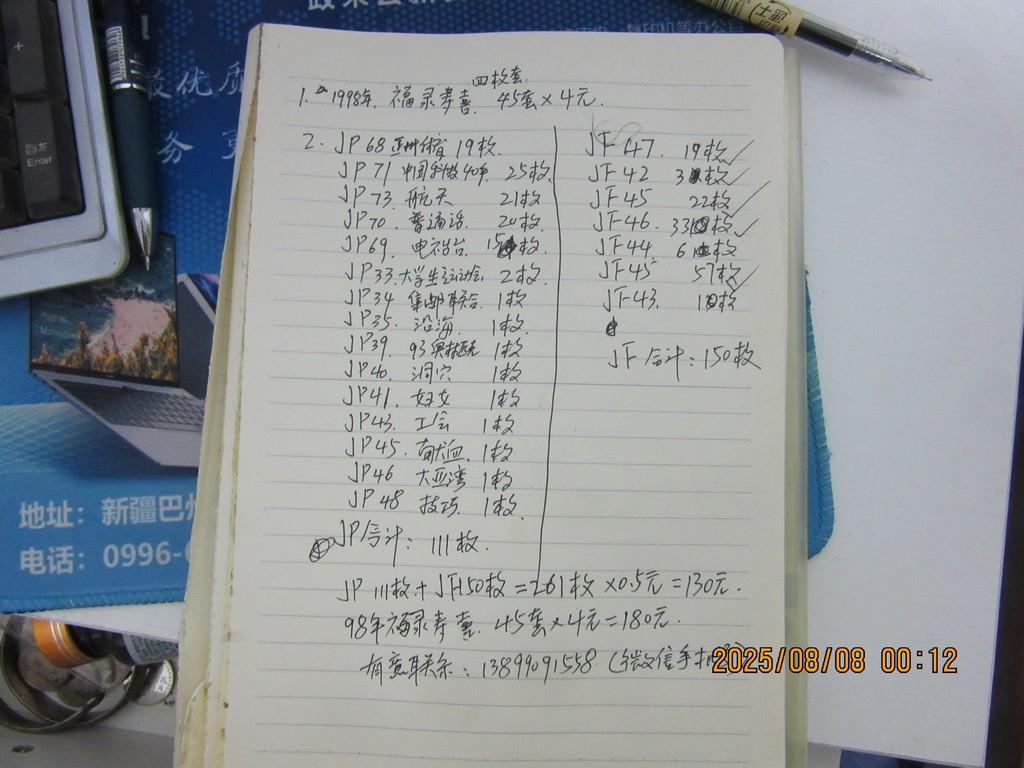 四枚套
1. 1998年. 福录寿喜. 45套×4元.
2. JP68 亚州体育 19枚.
JP71 中国 40年 25枚.
JP73. 航天 21枚
JP70. 普通话. 20枚.
JP69. 电视台. 15枚.
JP33. 大学生运动会 2枚.
JP34 集邮联合 1枚
JP35. 沿海. 1枚.
JP39. 93奥林匹克 1枚
JP40. 洞穴 1枚
JP41. 妇女 1枚
JP43. 工会 1枚
JP45. 献血. 1枚
JP46 大亚湾 1枚
JP48 技巧. 1枚
JP合计: 111枚.
JF47. 19枚✓
JF42 3枚✓
JF45 22枚✓
JF46. 33枚✓
JF44. 6枚
JF45 57枚✓
JF43. 1枚
JF合计: 150枚
JP 111枚+JF150枚=261枚×0.5元=130元.
98年福录寿喜. 45套×4元=180元.
有意联系: 13899091558 (微信手机
2025/08/08 00:12
最优质
务 更
地址: 新疆巴州
电话: 0996-6
回车
Enter